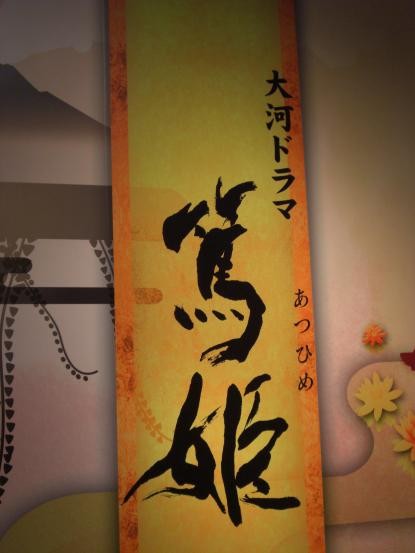 大河ドラマ
篤姫
あつひめ